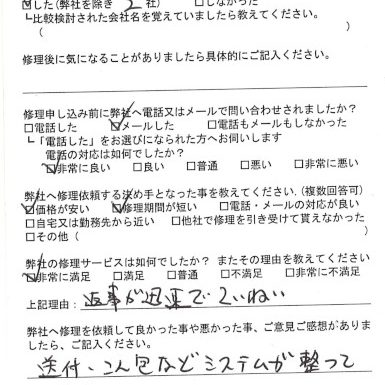 ☑した(弊社を除き 2 社) □しなかった
┗比較検討された会社名を覚えていましたら教えてください。
( )
修理後に気になることがありましたら具体的にご記入ください。
修理申し込み前に弊社へ電話又はメールで問い合わせされましたか?
□電話した ☑メールした □電話もメールもしなかった
┗「電話した」をお選びになられた方へお伺いします
電話の対応は如何でしたか?
☑非常に良い □良い □普通 □悪い □非常に悪い
弊社へ修理依頼する決め手となった事を教えてください。(複数回答可)
☑価格が安い ☑修理期間が短い □電話・メールの対応が良い
□自宅又は勤務先から近い □他社で修理を引き受けて貰えなかった
□その他( )
弊社の修理サービスは如何でしたか? またその理由を教えてください
☑非常に満足 □満足 □普通 □不満足 □非常に不満足
上記理由: 返事が迅速でていねい
弊社へ修理を依頼して良かった事や悪かった事、ご意見ご感想がありま
したら、ご記入ください。
送付・こん包などシステムが整って